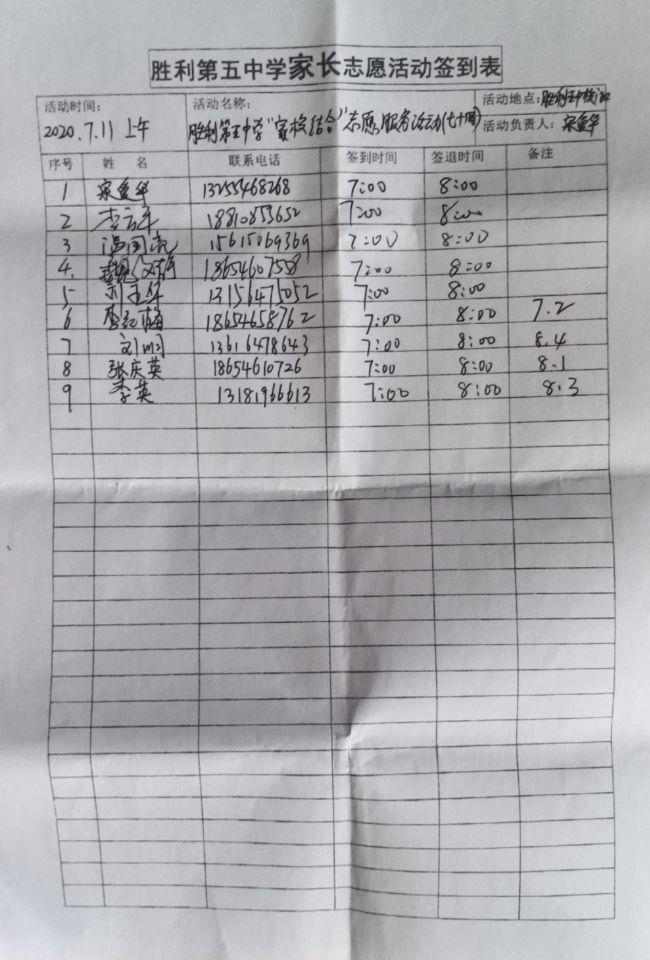 胜利第五中学家长志愿活动签到表
活动时间： 活动名称： 活动地点：胜利五中校门口
2020.7.11 上午 胜利第五中学"家校结合"志愿服务活动(七十周) 活动负责人：
序号 姓 名 联系电话 签到时间 签退时间 备注
1 13255468268 7:00 8:00
2 18810853652 7:00 8:00
3 15615069369 7:00 8:00
4. 18654607558 7:00 8:00
5 13156475052 7:00 8:00
6 李红梅 18654658762 7:00 8:00 7.2
7 刘明 13616478643 7:00 8:00 8.4
8 张庆英 18654610726 7:00 8:00 8.1
9 李英 13181966613 7:00 8:00 8.3